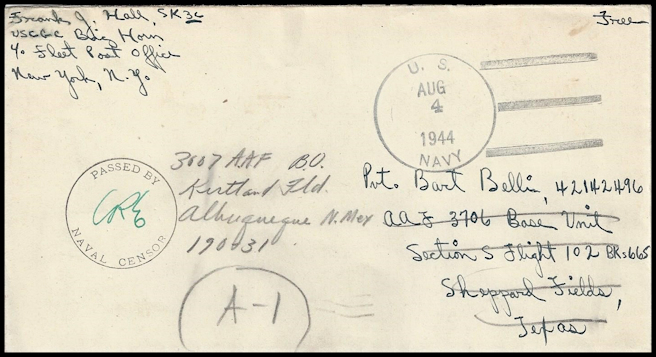 Frank J. Hall, SK3c
USCGC Big Horn
℅ Fleet Post Office
New York, N.Y.
Free
U. S.
AUG
4
1944
NAVY
PASSED BY
NAVAL CENSOR
3007 AAF B.U.
Kirtland Fld.
Albuquerque N. Mex
190-31
Pvt. Bart Bellin, 42142496
AAF 3706 Base Unit
Section S Flight 102 BKs 665
Sheppard Fields,
Texas
A-1